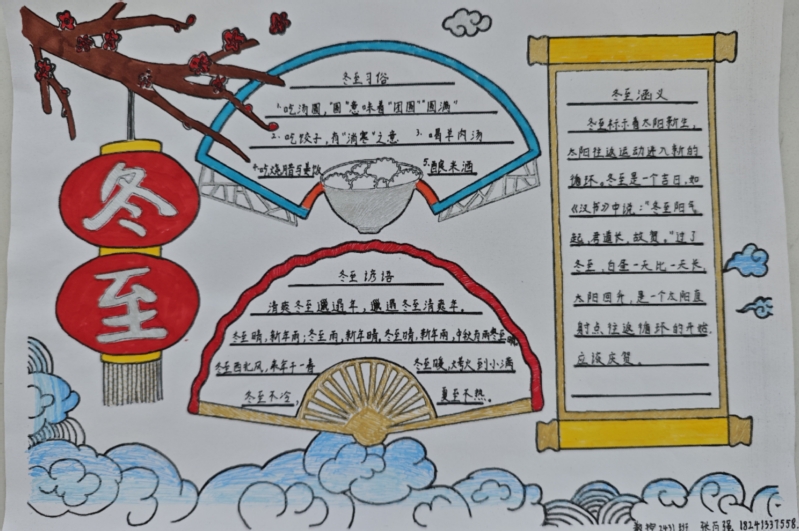 冬至
冬至习俗
1.吃汤圆，"圆"意味着"团圆""圆满"
2.吃饺子，有"消寒"之意 3.喝羊肉汤
4.吃烧腊与姜饭 5.酿米酒
冬至谚语
清爽冬至邋遢年，邋遢冬至清爽年。
冬至晴，新年雨；冬至雨，新年晴。冬至晴，新年雨，中秋有雨冬至晴
冬至西北风，来年干一春
冬至暖，烤火到小满
冬至不冷，
夏至不热。
冬至涵义
冬至标示着太阳新生、
太阳往返运动进入新的
循环。冬至是一个吉日，如
《汉书》中说："冬至阳气
起，君道长，故贺。"过了
冬至，白昼一天比一天长，
太阳回升，是一个太阳直
射点往返循环的开始，
应该庆贺。
数控2431班 张百强 18241537558